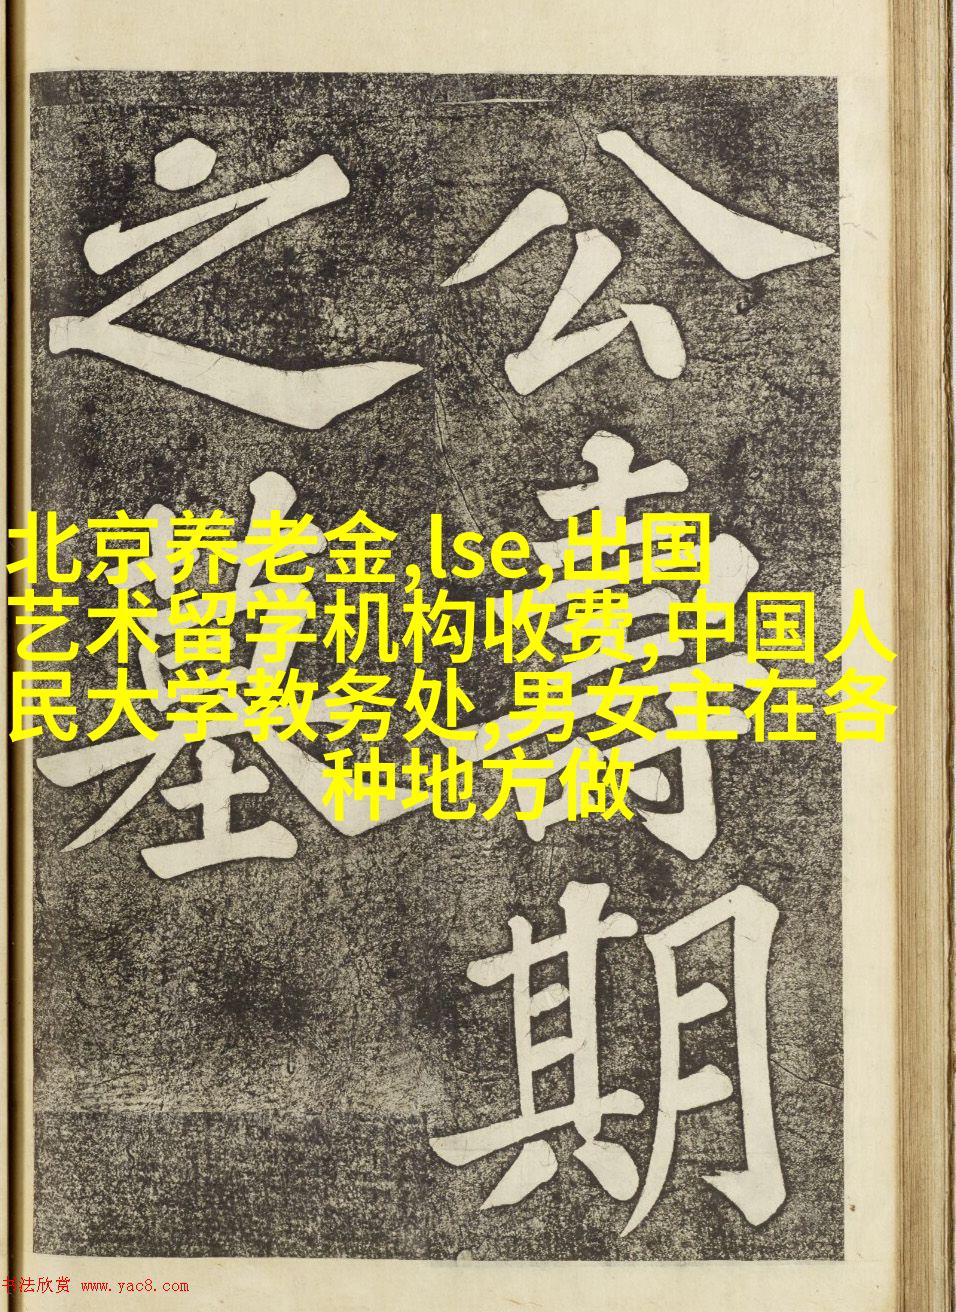 公壽期
之墓
北京养老金,lse,出国
艺术留学机构收费,中国人
民大学教务处,男女主在各
种地方做
书法欣赏 www.yac8.com